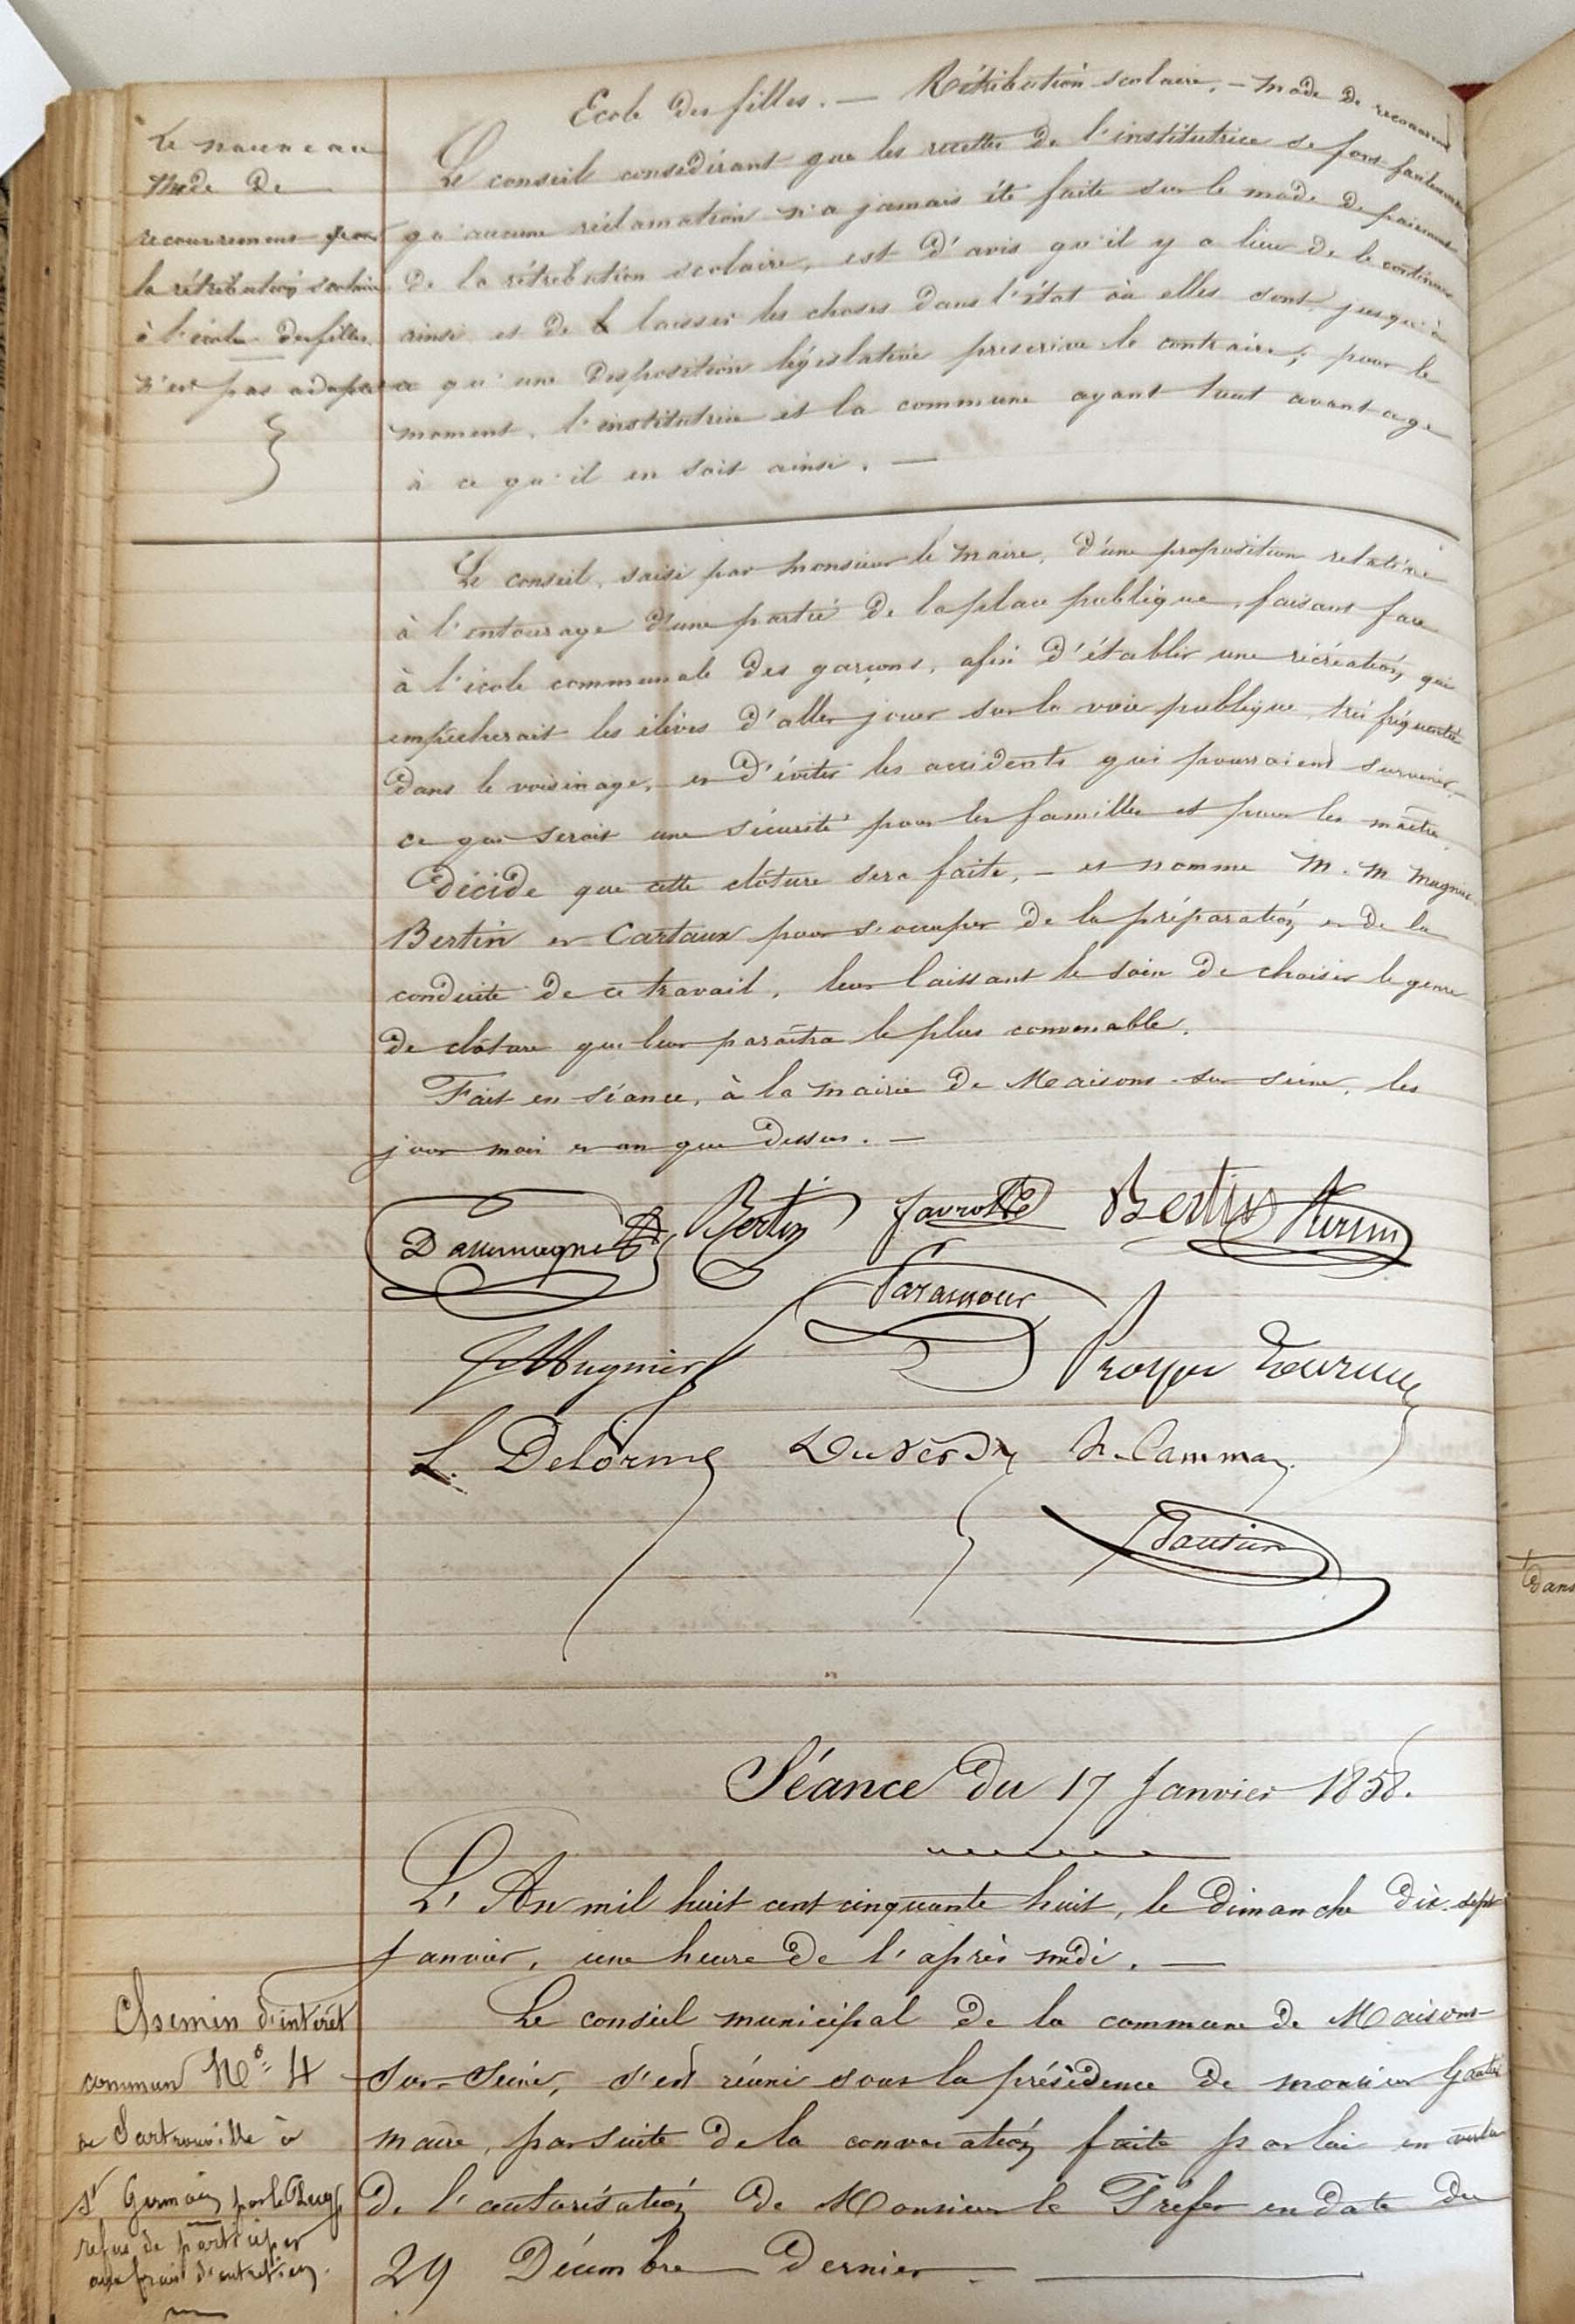 Ecole des filles. — Rétribution scolaire. — Mode de recouvrement
Le nouveau
mode de
recouvrement pour
la rétribution scolaire
à l'école des filles
n'est pas adopté
Le conseil considérant que les recettes de l'institutrice se font facilement
qu'aucune réclamation n'a jamais été faite sur le mode de paiement
de la rétribution scolaire, est d'avis qu'il y a lieu de le continuer
ainsi et de laisser les choses dans l'état où elles sont jusqu'à
ce qu'une disposition législative prescrive le contraire; pour le
moment, l'institutrice et la commune ayant tout avantage
à ce qu'il en soit ainsi. —
Le conseil, saisi par Monsieur le Maire, d'une proposition relative
à l'entourage d'une partie de la place publique, faisant face
à l'école communale des garçons, afin d'établir une récréation, qui
empêcherait les élèves d'aller jouer sur la voie publique, très fréquentée
dans le voisinage, et d'éviter les accidents qui pourraient survenir,
ce qui serait une sécurité pour les familles et pour les maîtres.
Décide que cette clôture sera faite, — et nomme M. M Mugnier
Bertin et Cartaux pour s'occuper de la préparation et de la
conduite de ce travail, leur laissant le soin de choisir le genre
de clôture que leur paraîtra le plus convenable.
Fait en séance, à la mairie de Maisons-sur-Seine, les
jour mois et an que dessus. —
Bertin Bertin
Mugnier Prosper
L. Delorme Duverdy
Gautier
Séance du 17 Janvier 1858.
L'An mil huit cent cinquante huit, le Dimanche dix-sept
Janvier, une heure de l'après midi. —
Chemin d'intérêt
commun No. 4
de Sartrouville à
St Germain par le Pecq
refus de participer
aux frais d'entretien.
Le conseil municipal de la commune de Maisons-
sur-Seine, s'est réuni sous la présidence de monsieur Gautier
maire, par suite de la convocation faite par lui en vertu
de l'autorisation de Monsieur le Préfet en date du
29 Décembre Dernier. —